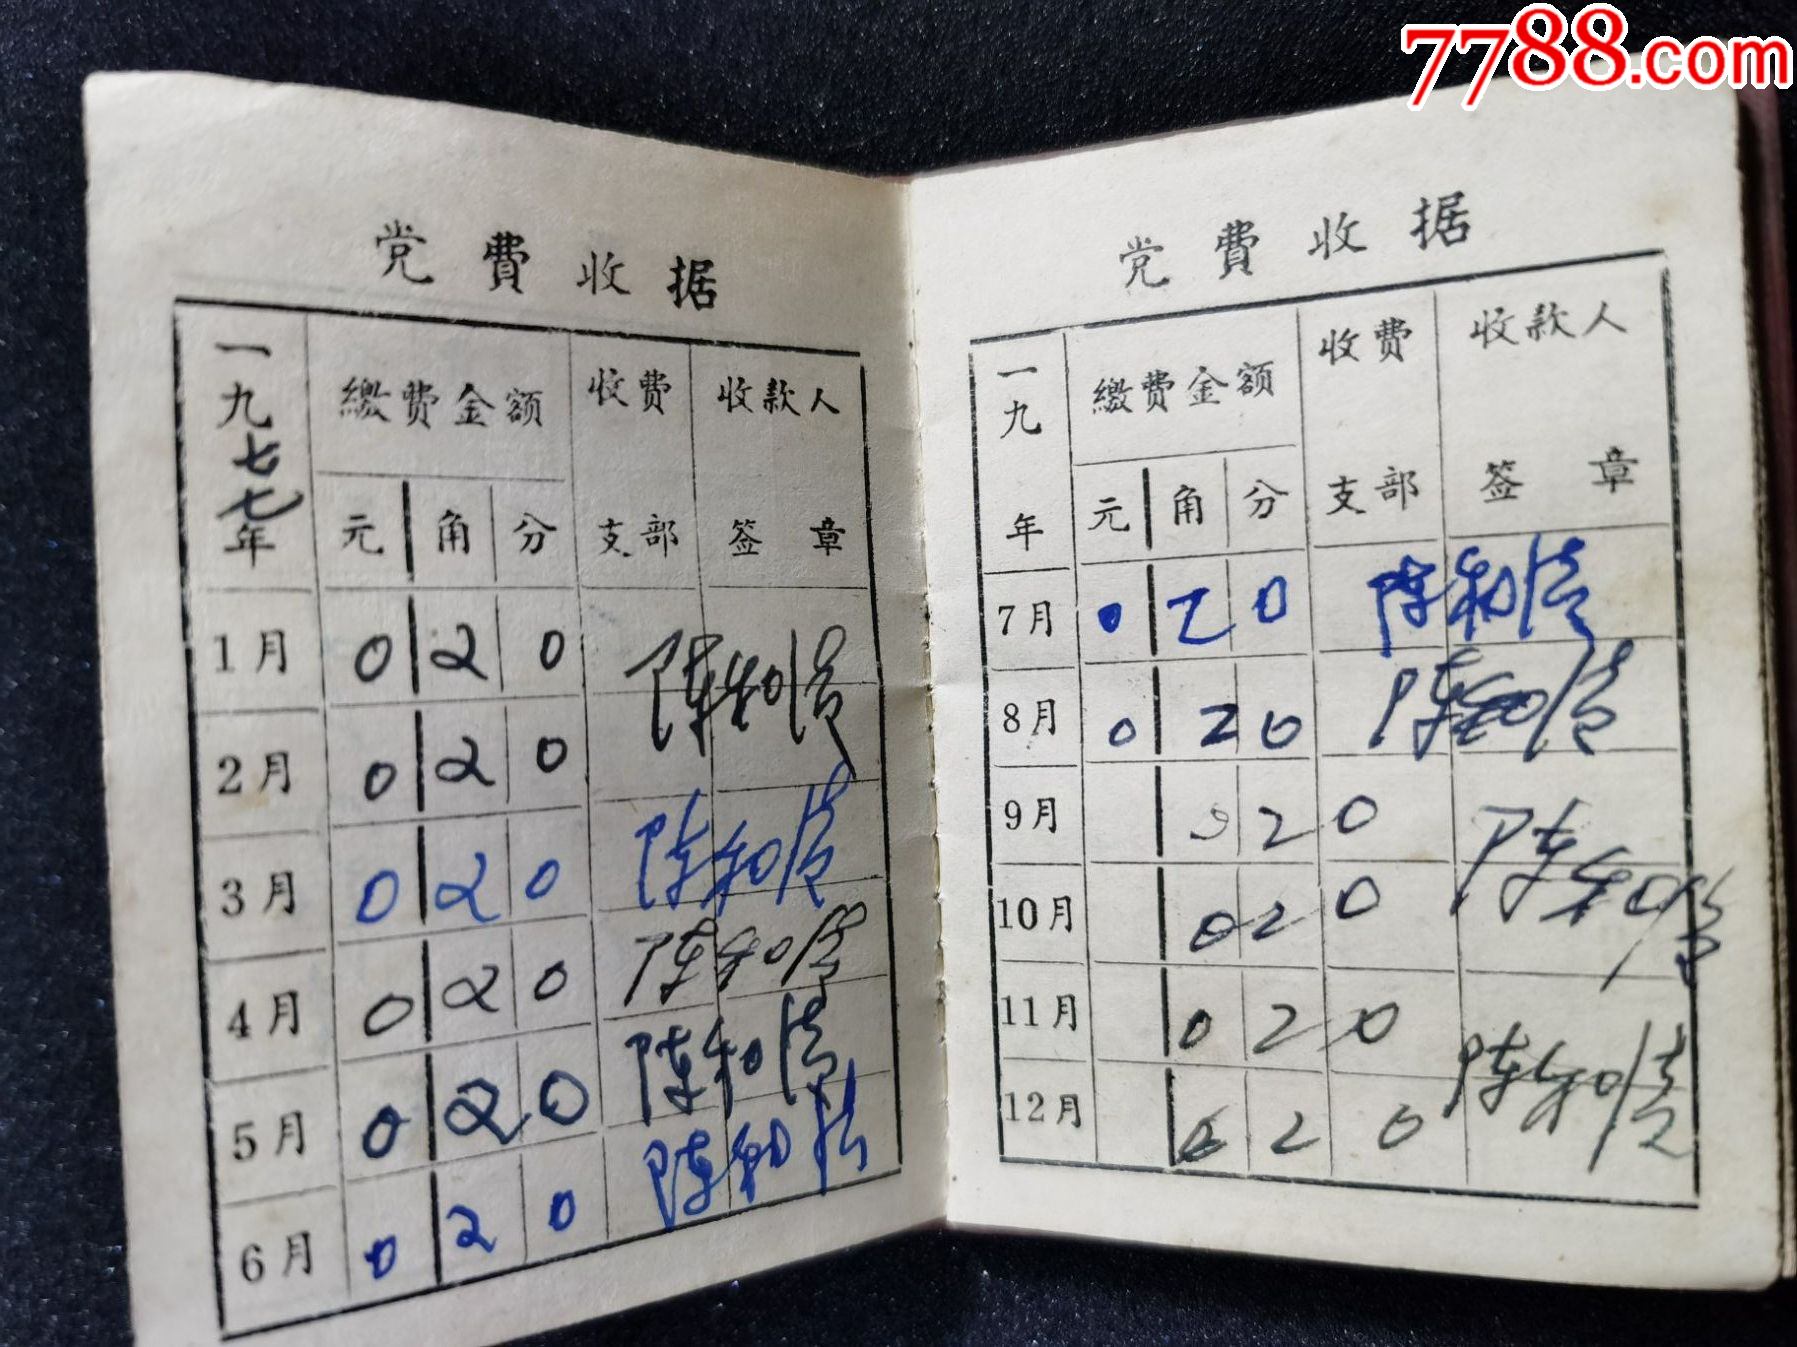 7788.com
党费收据
一九七七年 缴费金额 收费支部 收款人签章
元 角 分
1月 0 2 0 陈和
2月 0 2 0
3月 0 2 0 陈和
4月 0 2 0 陈和
5月 0 2 0 陈和
6月 0 2 0 陈和
党费收据
一九 年 缴费金额 收费支部 收款人签章
元 角 分
7月 0 2 0 陈和
8月 0 2 0 陈和
9月 0 2 0 陈和
10月 0 2 0
11月 0 2 0 陈和
12月 0 2 0